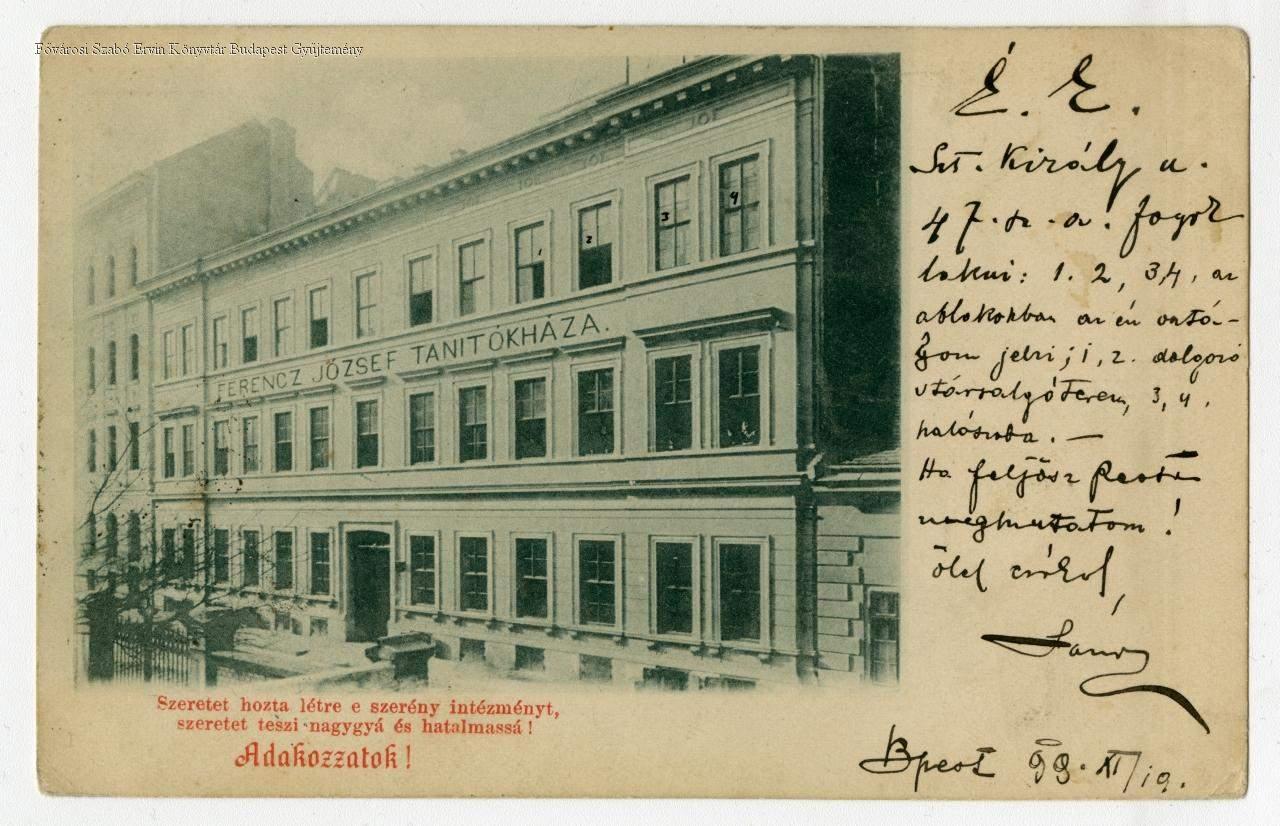 Fővárosi Szabó Ervin Könyvtár Budapest Gyűjtemény
JOE JOE JOE
1 2 3 4
FERENCZ JÓZSEF TANITÓKHÁZA.
Szeretet hozta létre e szerény intézményt,
szeretet teszi nagygyá és hatalmassá!
Adakozzatok!
É. E.
Szt. Király u.
47. sz. a. fogok
lakni: 1. 2, 3, 4, az
ablakokban az én
jelzi; 1, 2. dolgozó
s társalgóterem, 3, 4.
hálószoba. —
Ha feljösz Pestre
megmutatom!
ölel csókol
Bpest 99. XI/19.